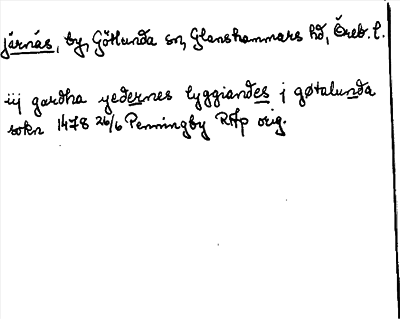 Järnäs, by, Götlunda sn, Glanshammars hd, Öreb. l.
iij gardha yedernes lyggiandes j gøtalunda
sokn 1478 26/6 Penningby RAp orig.